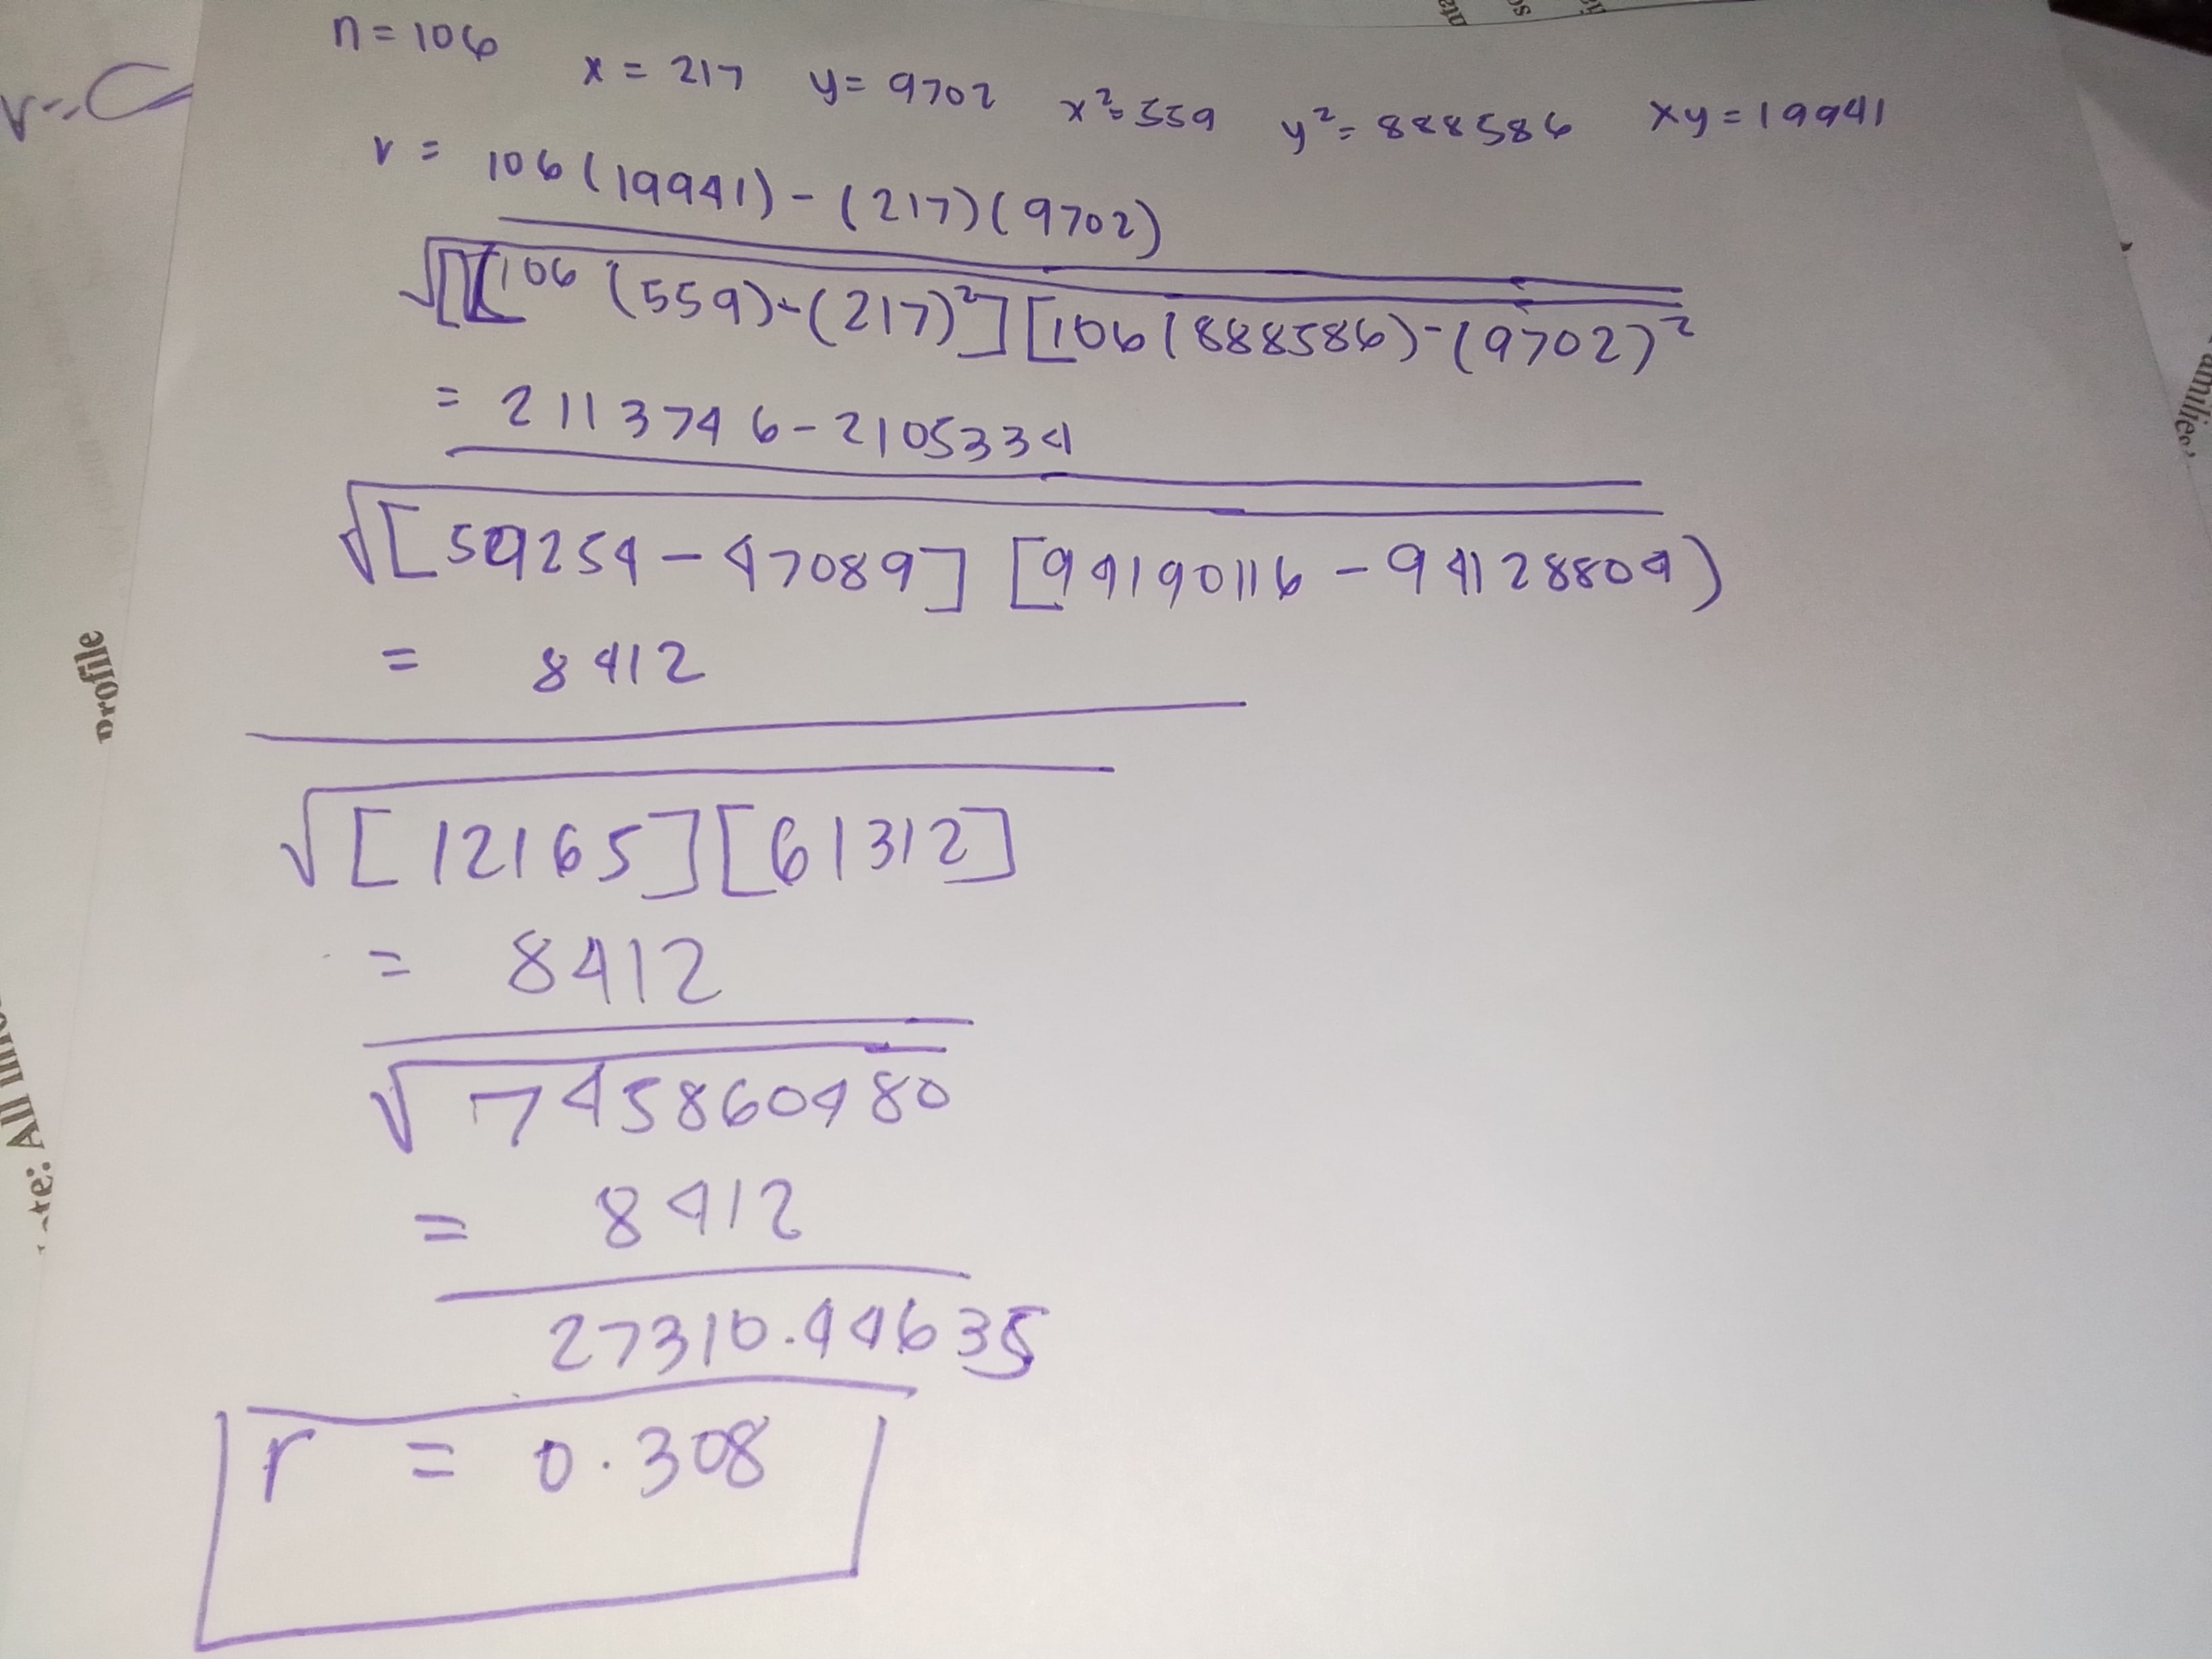 n = 106
x = 217 y = 9702 x² = 559 y² = 888586 xy = 19941
r = 106(19941) - (217)(9702)
√[[106 (559) - (217)²] [106(888586) - (9702)²
= 2113746 - 2105334
√[59254 - 47089] [94190116 - 94128804)
= 8412
√[12165][61312]
= 8412
√745860480
= 8412
27310.44635
r = 0.308
profile